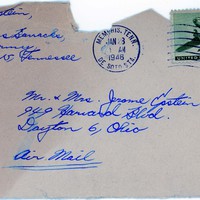 stein,
Barracks
Army
Tennessee
MEMPHIS, TENN.
JAN 3
AM
1946
DE SOTO STA.
UNITED
Mr. & Mrs. Jerome Epstein
949 Harvard Blvd.
Dayton 6, Ohio
Air Mail